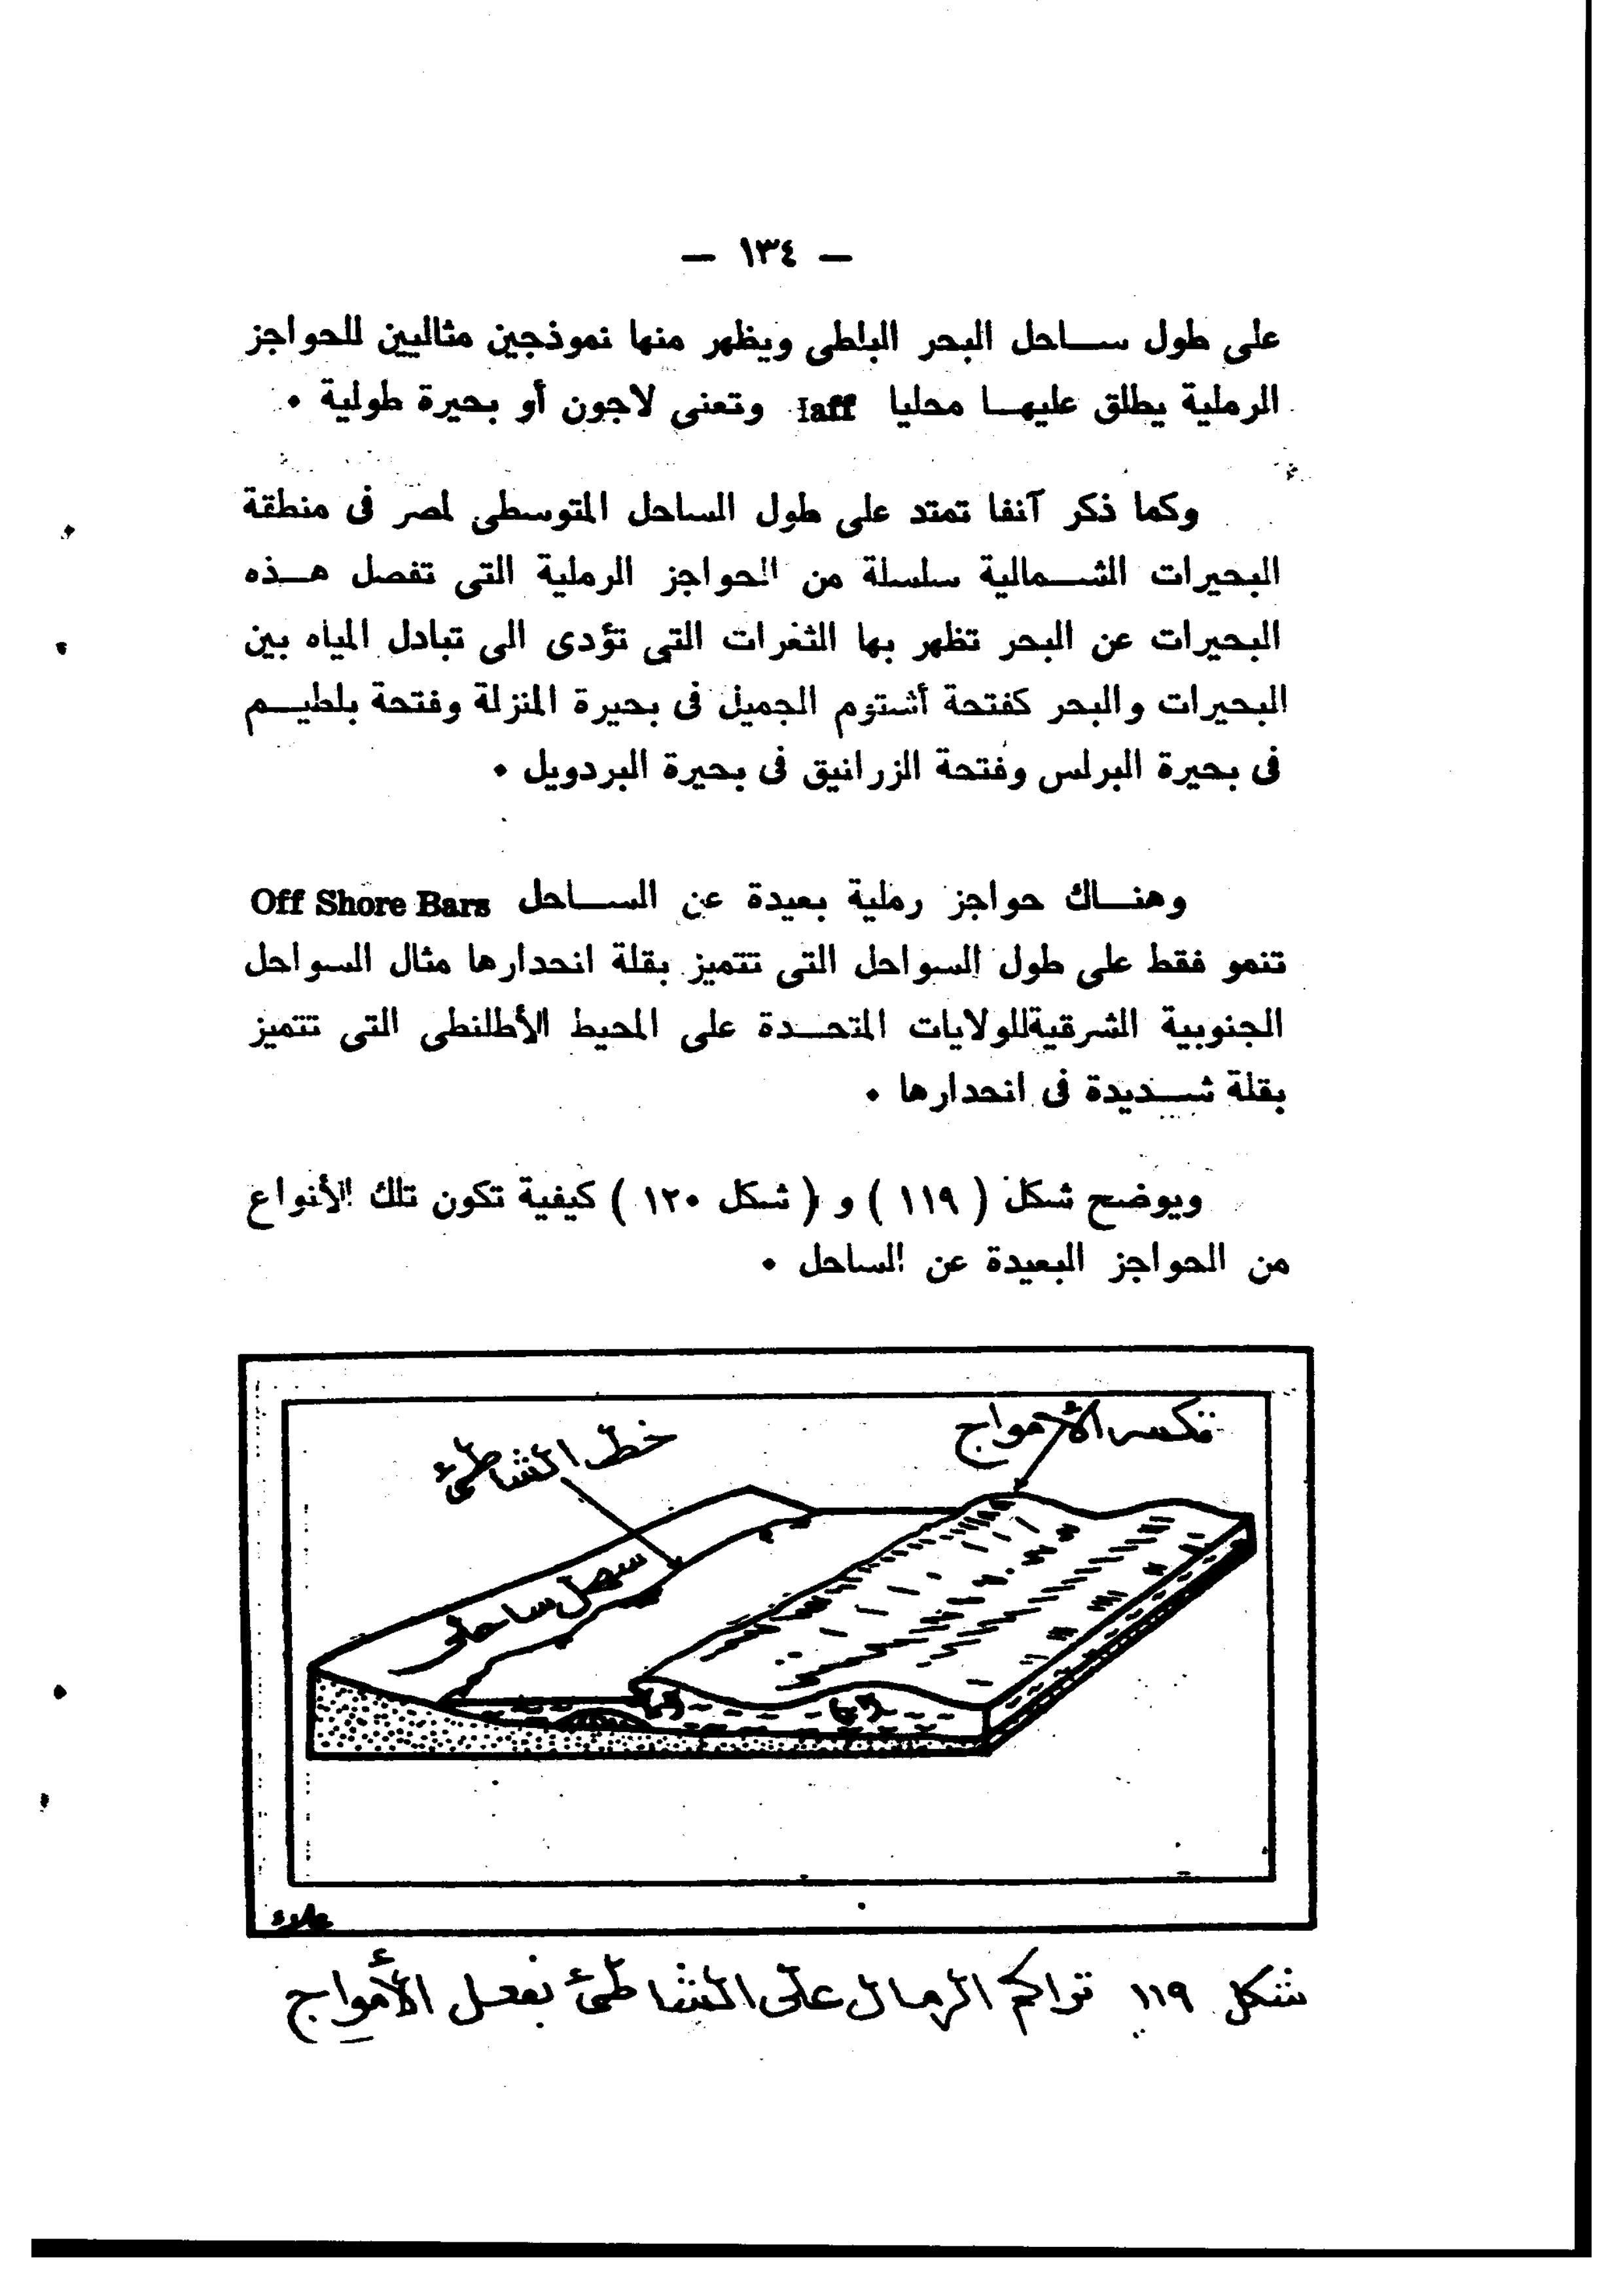 — ١٣٤ —
على طول ساحل البحر البلطى ويظهر منها نموذجين مثاليين للحواجز
الرملية يطلق عليها محليا Iaff وتعنى لاجون أو بحيرة طولية .
وكما ذكر آنفا تمتد على طول الساحل المتوسطى لمصر فى منطقة
البحيرات الشمالية سلسلة من الحواجز الرملية التى تفصل هذه
البحيرات عن البحر تظهر بها الثغرات التى تؤدى الى تبادل المياه بين
البحيرات والبحر كفتحة أشتوم الجميل فى بحيرة المنزلة وفتحة بلطيم
فى بحيرة البرلس وفتحة الزرانيق فى بحيرة البردويل .
وهناك حواجز رملية بعيدة عن الساحل Off Shore Bars
تنمو فقط على طول السواحل التى تتميز بقلة انحدارها مثال السواحل
الجنوبية الشرقيةللولايات المتحدة على المحيط الأطلنطى التى تتميز
بقلة شديدة فى انحدارها .
ويوضح شكل ( ١١٩ ) و ( شكل ١٢٠ ) كيفية تكون تلك الأنواع
من الحواجز البعيدة عن الساحل .
تكسر الأمواج
خط الشاطئ
سهل ساحلى
علاء
شكل ١١٩ تراكم الرمال على الشاطئ بفعل الأمواج